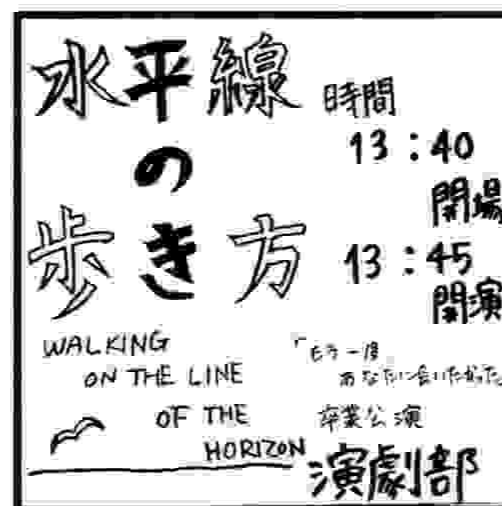 水平線
の
歩き方
時間
13:40
開場
13:45
開演
WALKING
ON THE LINE
OF THE
HORIZON
「もう一度
あなたに会いたかった
卒業公演
演劇部